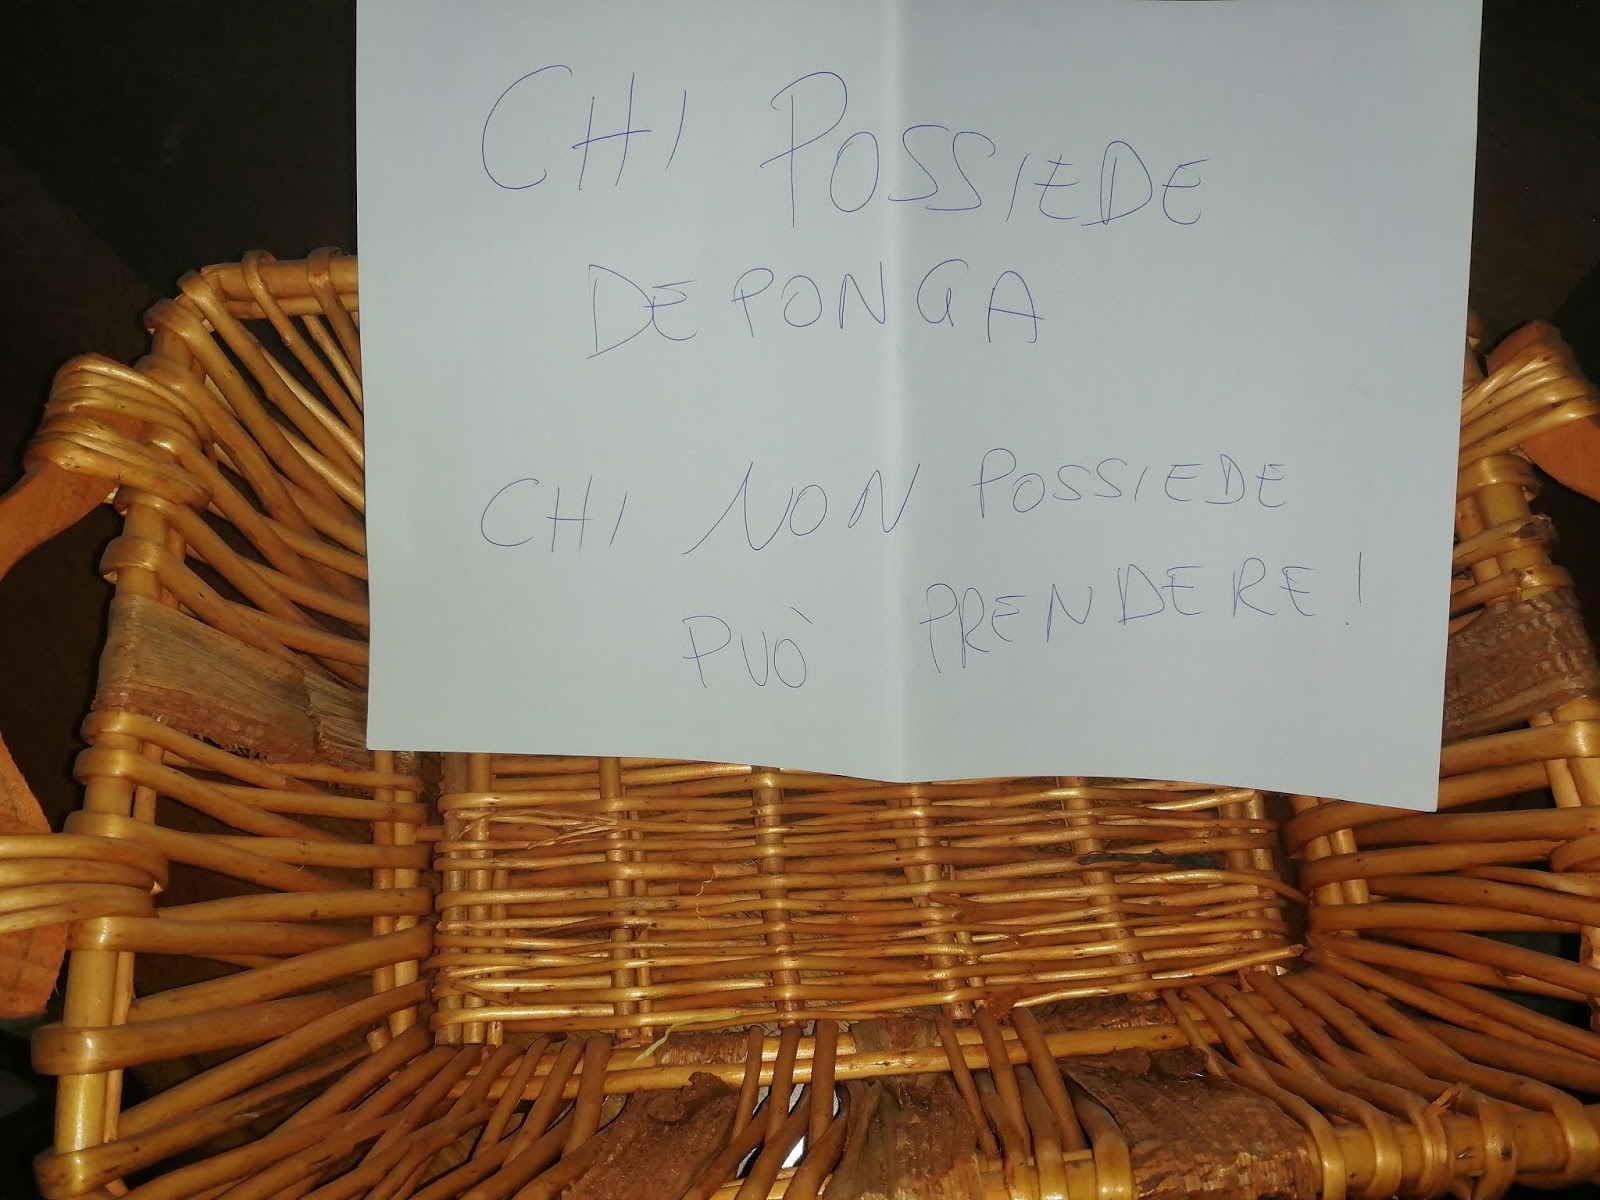 CHI POSSIEDE
DEPONGA
CHI NON POSSIEDE
PUÒ PRENDERE!